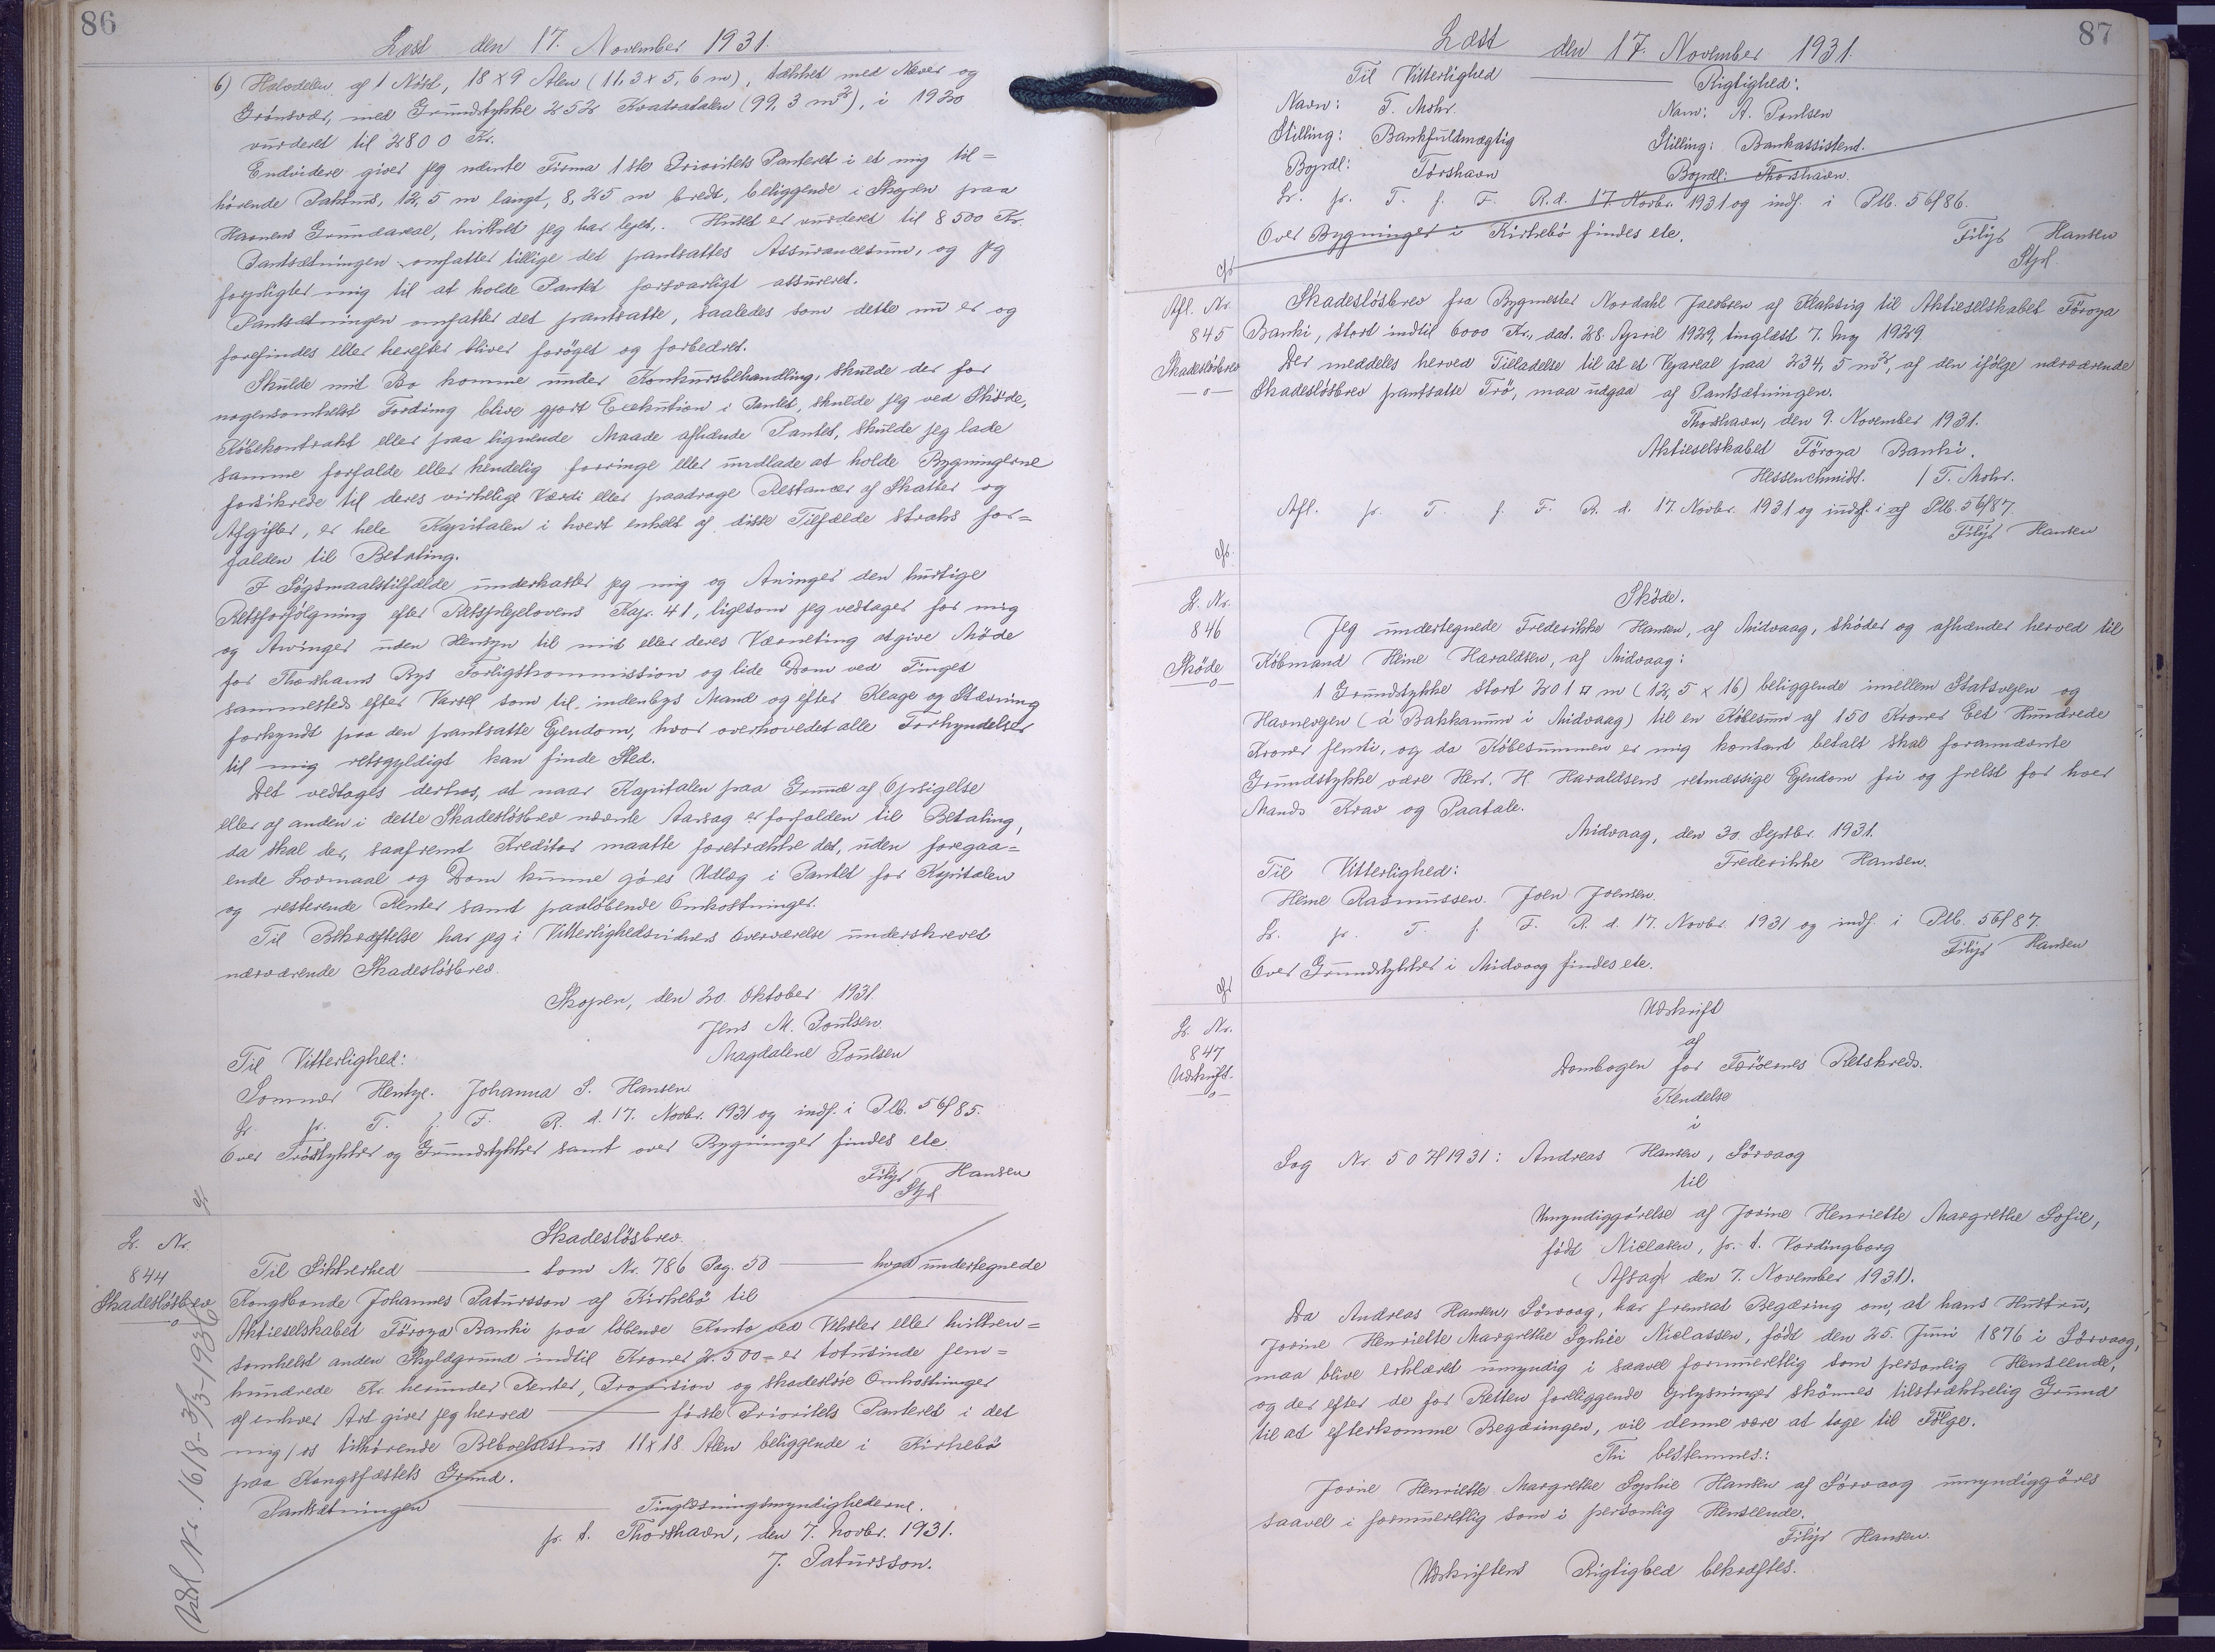 86
Læst den 17. November 1931.
6) Halvdelen af 1 Nöst, 18 x 9 Alen (11,3 x 5,6 m), tækket med Næver og
Grönsvær, med Grundstykke 252 Kvadratalen (99,3 m²), i 1920
vurderet til 2800 Kr.
Endvidere giver jeg nævnte Firma 1ste Prioritets Panteret i et mig til=
hörende Pakhus, 12,5 m langt, 8,25 m bredt, beliggende i Skopen paa
Havnens Grundareal, hvilket jeg har lejet. Huset er vurderet til 8500 Kr.
Pantsætningen omfatter tillige det pantsattes Assurancesum, og jeg
forpligter mig til at holde Pantet forsvarligt assureret.
Pantsætningen omfatter det pantsatte, saaledes som dette nu er og
forefindes eller herefter bliver foröget og forbedret.
Skulde mit Bo komme under Konkursbehandling, skulde der for
nogensomhelst Fordring blive gjort Exekution i Pantet, skulde jeg ved Sköde,
Köbekontrakt eller paa lignende Maade afhænde Pantet, skulde jeg lade
samme forfalde eller kendelig forringe eller undlade at holde Bygningerne
forsikrede til deres virkelige Værdi eller paadrage Restancer af Skatter og
Afgifter, er hele Kapitalen i hvert enkelt af disse Tilfælde straks for=
falden til Betaling.
I Sögsmaalstilfælde underkaster jeg mig og Arvinger den hurtige
Retsforfölgning efter Retsplejelovens Kap. 41, ligesom jeg vedtager for mig
og Arvinger uden Hensyn til mit eller deres Værneting at give Möde
for Thorshavns Bys Forligskommission og lide Dom ved Tinget
sammesteds efter Varsel som til indenbys Mand og efter Klage og Stævning
forkyndt paa den pantsatte Ejendom, hvor overhovedet alle Forkyndelser
til mig retsgyldigt kan finde Sted.
Det vedtages derhos, at naar Kapitalen paa Grund af Opsigelse
eller af anden i dette Skadeslösbrev nævnte Aarsag er forfalden til Betaling,
da skal der, saafremt Kreditor maatte foretrække det, uden foregaa=
ende Lovmaal og Dom kunne göres Udlæg i Pantet for Kapitalen
og resterende Renter samt paalöbende Omkostninger.
Til Bekræftelse har jeg i Vitterlighedsvidners Overværelse underskrevet
nærværende Skadeslösbrev.
Skopen, den 20. Oktober 1931.
Jens M. Poulsen.
Magdalene Poulsen
Til Vitterlighed:
Hentze. Johanna S. Hansen
Lr. pr. T. f. F. R. d. 17. Novbr. 1931 og indf. i Plb. 56/85.
Over Tröstykker og Grundstykker samt over Bygninger findes etc.
Filip Hansen
Stfd
cfr
Lr. Nr.
844
Skadeslösbrev
—o—
Skadeslösbrev.
Til Sikkerhed —— som Nr. 786 Pag. 50 —— hvad undertegnede
Kongsbonde Johannes Patursson af Kirkebö til ——
Aktieselskabet Föroya Banki paa löbende Konto ved Veksler eller hvilken=
somhelst anden Skyldgrund indtil Kroner 2.500 = er totusinde fem=
hundrede Kr. herunder Renter, Provision og skadeslöse Omkostninger
af enhver Art giver jeg herved —— förste Prioritets Panteret i det
mig/os tilhörende Beboelseshus 11 x 18 Alen beliggende i Kirkebö
paa Kongsfæstets Grund.
Pantsætningen —— Tinglæsningsmyndighederne.
pr. t. Thorshavn, den 7. Novbr. 1931.
J. Patursson.
Udsl Nr. 1618-3/3-1936
87
Læst den 17. November 1931.
Til Vitterlighed —— Rigtighed:
Navn: T. Mohr. Navn: A. Poulsen
Stilling: Bankfuldmægtig Stilling: Bankassistent.
Bopæl: Torshavn Bopæl: Thorshavn.
Lr. pr. T. f. F. R. d. 17. Novbr. 1931 og indf. i Plb. 56/86.
Over Bygninger i Kirkebö findes etc.
Filip Hansen
Stfd
cfr
Afl. Nr.
845
Skadeslösbrev
—o—
Skadeslösbrev fra Bygmester Nordahl Jacobsen af Klaksvig til Aktieselskabet Föroya
Banki, stort indtil 6000 Kr., dat. 28. April 1929, tinglæst 7. Maj 1929.
Der meddeles herved Tilladelse til at et Vejareal paa 234,5 m², af den ifölge nærværende
Skadeslösbrev pantsatte Trö, maa udgaa af Pantsætningen.
Thorshavn, den 9. November 1931.
Aktieselskabet Föroya Banki.
Hessenschmidt. / T. Mohr.
Afl. pr. T. f. F. R. d. 17. Novbr. 1931 og indf. i af Plb. 56/87.
Filip Hansen
cfr.
Lr. Nr.
846
Sköde
—o—
Sköde.
Jeg undertegnede Frederikke Hansen, af Midvaag, sköder og afhænder herved til
Köbmand Heine Haraldsen, af Midvaag:
1 Grundstykke stort 201 □ m (12,5 x 16) beliggende imellem Statsvejen og
Havnevejen (á Bakkanum i Midvaag) til en Köbesum af 150 Kroner Eet Hundrede
Kroner femti, og da Köbesummen er mig kontant betalt skal forannævnte
Grundstykke være Herr. H. Haraldsens retmæssige Ejendom fri og frelst for hver
Mands Krav og Paatale.
Midvaag, den 30. Septbr. 1931.
Frederikke Hansen.
Til Vitterlighed:
Heine Rasmussen. Joen Joensen.
Lr. pr. T. f. F. R. d. 17. Novbr. 1931 og indf. i Plb. 56/87.
Filip Hansen
Over Grundstykker i Midvaag findes etc.
cfr
Lr. Nr.
847
Udskrift.
—o—
Udskrift
af
Dombogen for Færöernes Retskreds.
Kendelse
i
Sag Nr. 507/1931: Andreas Hansen, Sörvaag
til
Umyndiggörelse af Jorine Henriette Margrethe Sofie,
född Niclasen, pr. t. Vordingborg
(Afsagt den 7. November 1931).
Da Andreas Hansen, Sörvaag, har fremsat Begæring om, at hans Hustru,
Jorine Henriette Margrethe Sophie Niclassen, född den 25. Juni 1876 i Sörvaag,
maa blive erklæret umyndig i saavel formueretlig som personlig Henseende,
og der efter de for Retten foreliggende Oplysninger skönnes tilstrækkelig Grund
til at efterkomme Begæringen, vil denne være at tage til Fölge.
Thi bestemmes:
Jorine Henriette Margrethe Sophie Hansen af Sörvaag umyndiggöres
saavel i formueretlig som i personlig Henseende.
Filip Hansen.
Udskriftens Rigtighed bekræftes.